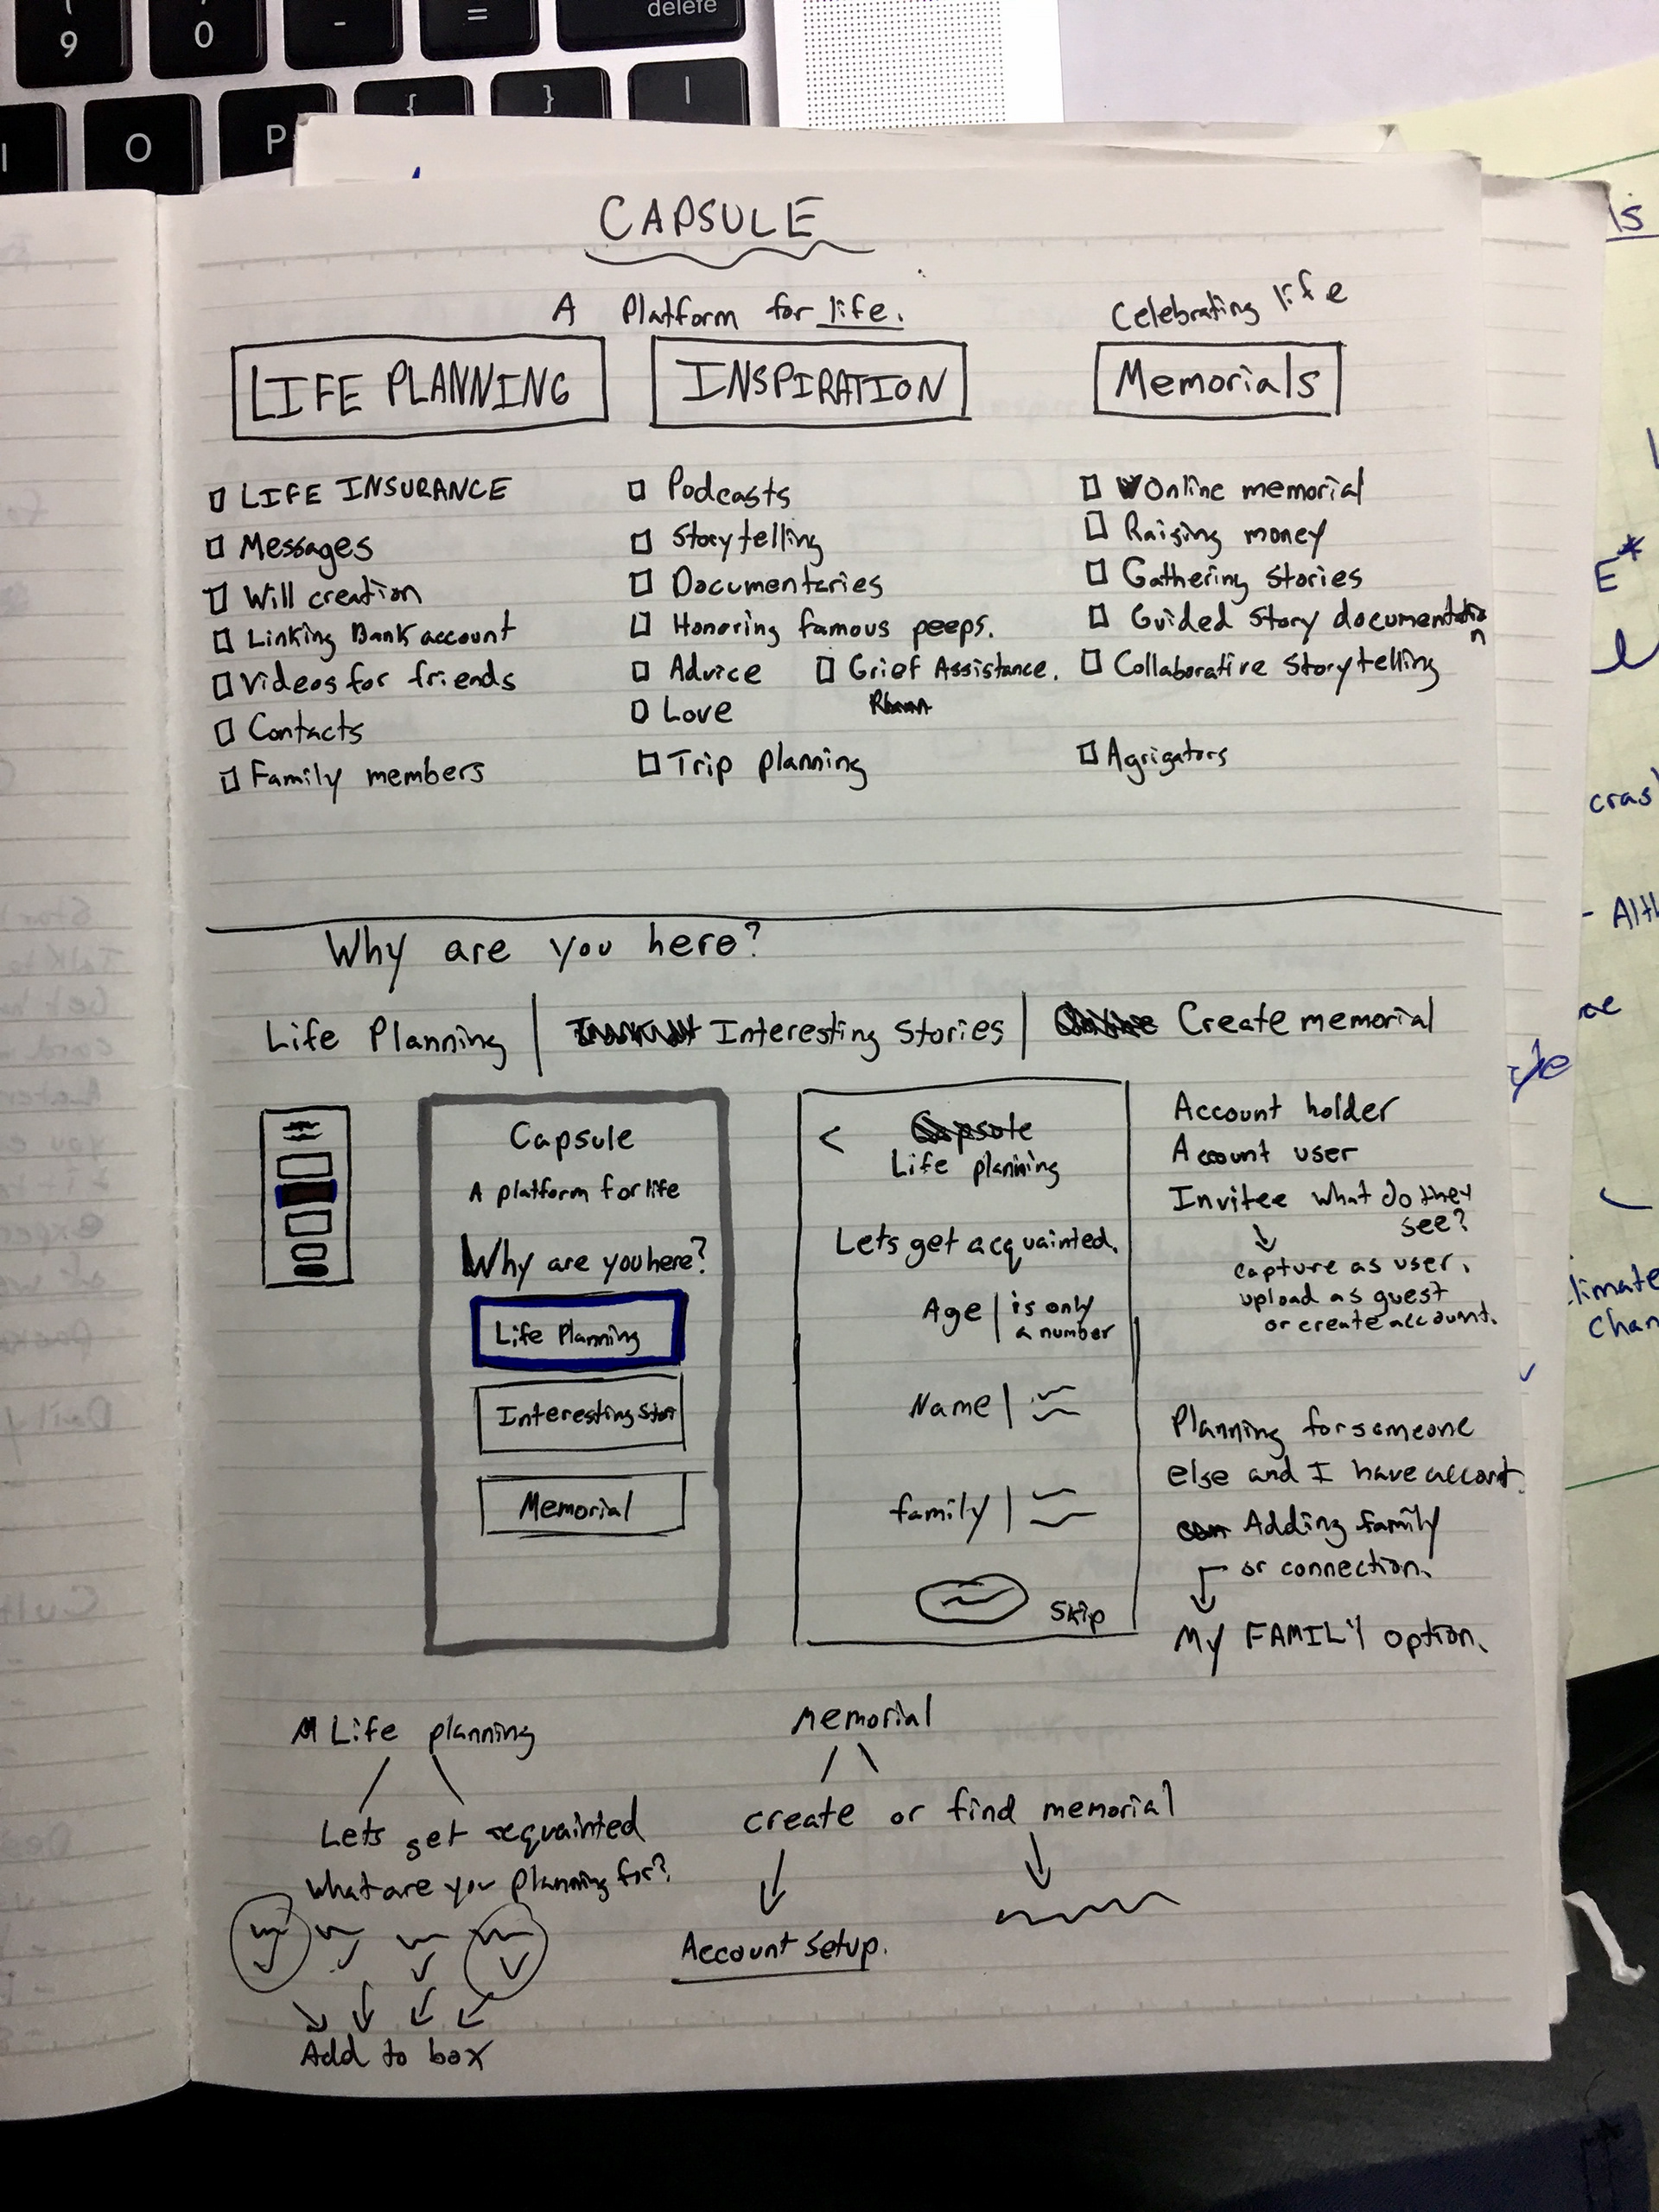 9
0
-
=
delete
O
P
{
}
CAPSULE
A Platform for life.
Celebrating life
LIFE PLANNING
INSPIRATION
Memorials
LIFE INSURANCE
Messages
Will creation
Linking Bank account
Videos for friends
Contacts
Family members
Podcasts
Storytelling
Documentaries
Honoring famous peeps.
Advice
Grief Assistance.
Love
Trip planning
Online memorial
Raising money
Gathering Stories
Guided Story documentation
Collaborative Storytelling
Agrigators
Why are you here?
Life Planning | Interesting Stories | Create memorial
Capsule
A platform for life
Why are you here?
Life Planning
Interesting Stor
Memorial
<
Capsule
Life planning
Lets get acquainted.
Age | is only
a number
Name |
family |
Skip
Account holder
Account user
Invitee what do they
see?
capture as user,
upload as guest
or create account.
Planning for someone
else and I have accont.
Adding family
or connection.
My FAMILY option.
Life planning
Lets get acquainted
What are you planning for?
Add to box
Memorial
create or find memorial
Account Setup.
ls
E*
cras
- Alth
limate
Chan